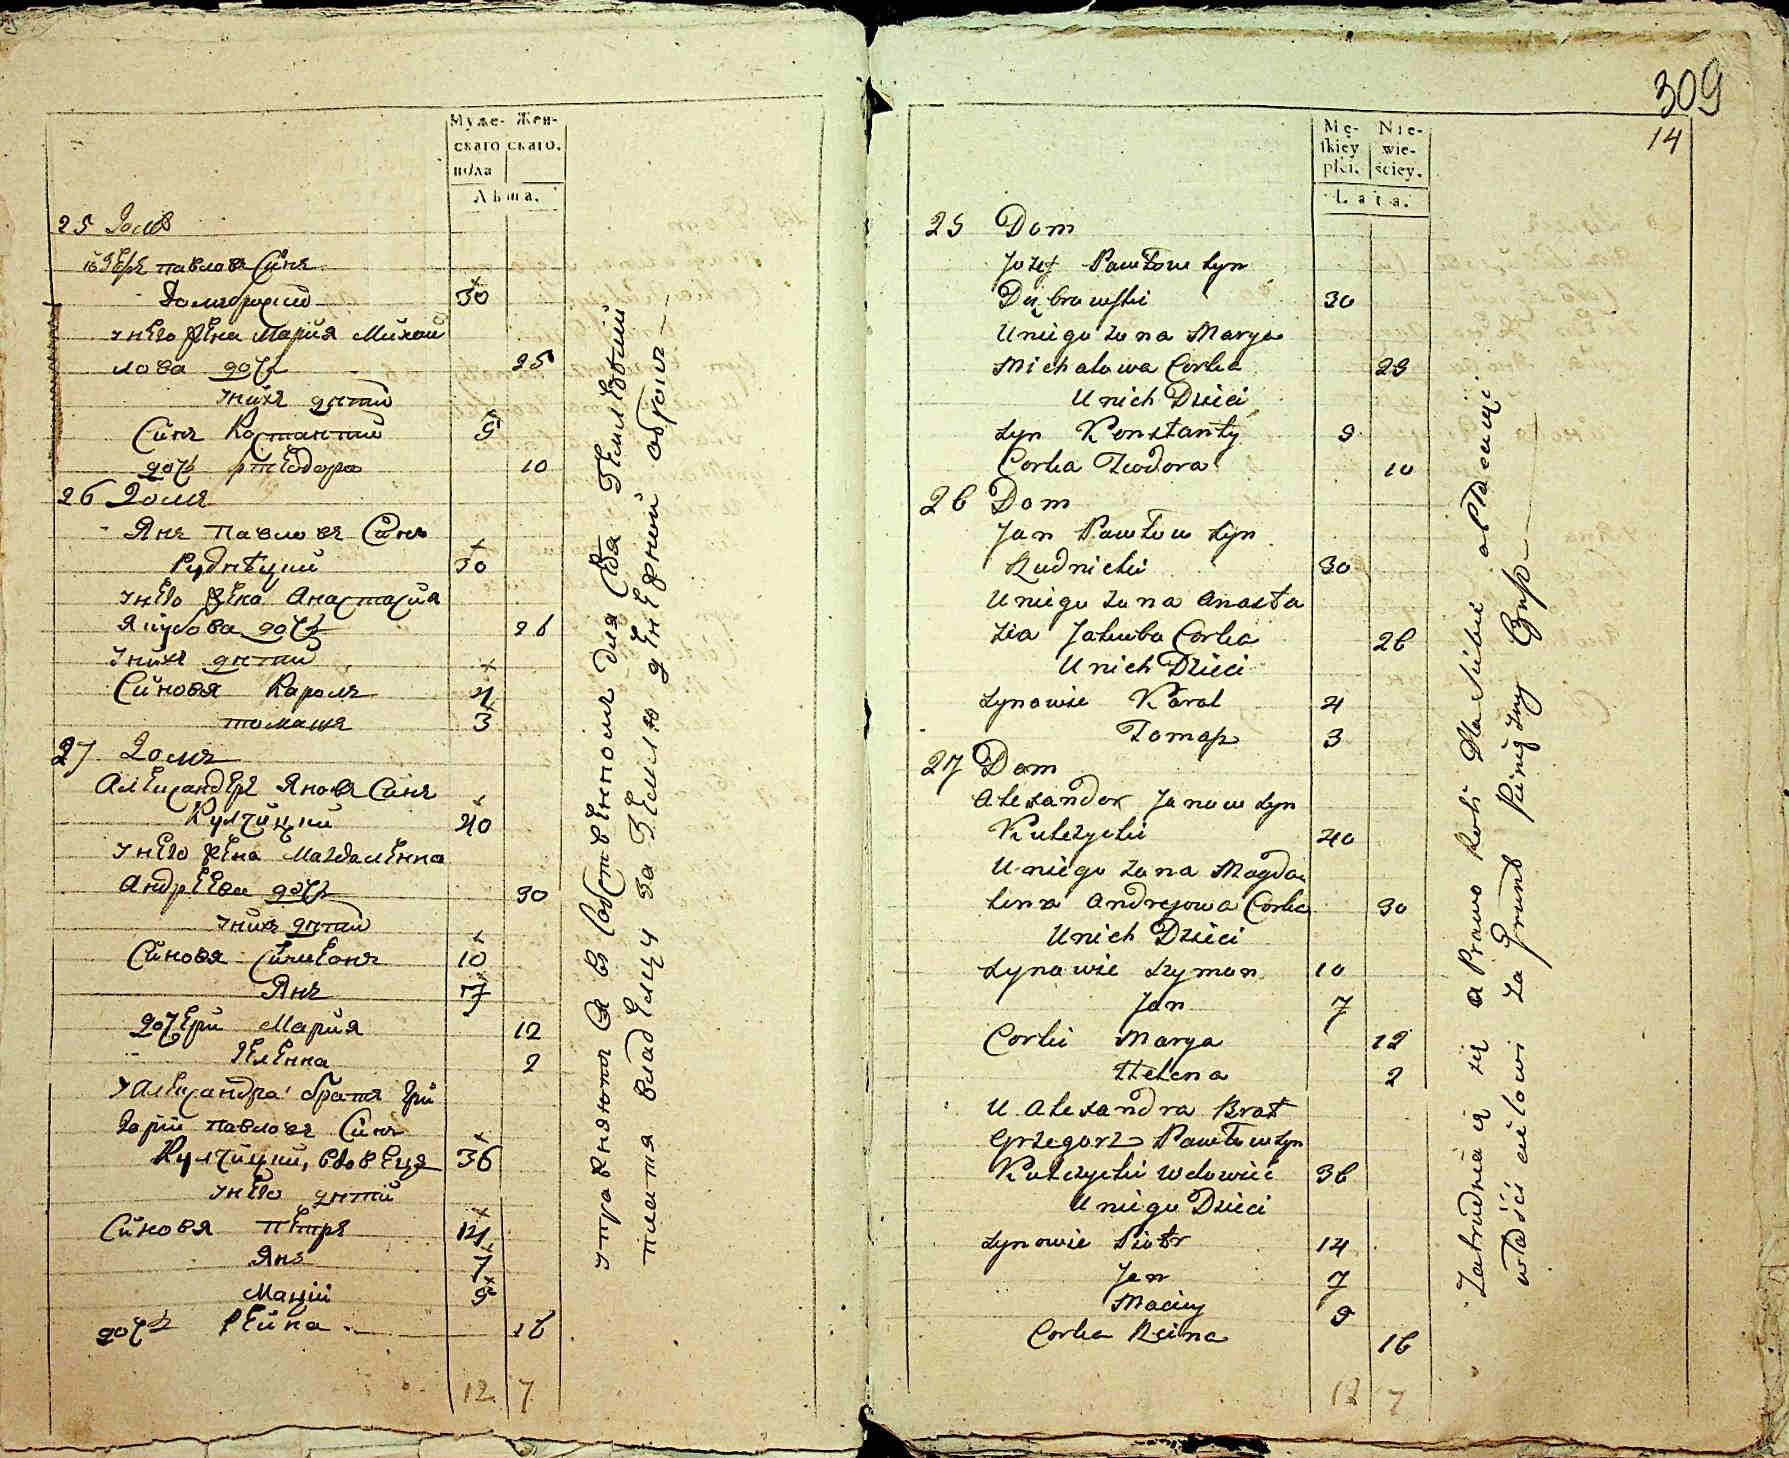 Муже- Жен-
скаго скаго.
пола
Лѣта.
25 Домъ
Іозефъ Павловъ Синъ
Домбровский 30
У него жена Мария Михай
лова дочь 25
У нихъ дѣти
Синъ Костантий 9
дочь Ѳтеодора 10
26 Домъ
Янъ Павловъ Синъ
Рудницкий 30
У него жена Анастасия
Якубова дочь 26
У нихъ дѣтий
Синовя Кароль 4
томашъ 3
27 Домъ
Александеръ Яновъ Синъ
Кулчицкий 40
У него жена Магдаленна
Андреева дочь 30
У нихъ дѣтий
Синовя Симеонъ 10
Янъ 7
дочери Мария 12
Геленна 2
У Александра братъ Гри
горий павловъ Синъ
Кулчицкий, вдовецъ 36
У него дѣтий
Синовя петръ 14
Янъ 7
Маций 9
дочь Реина 16
12 7
упражняются въ собственномъ для себя Земледѣлии
платя владелцу за Землю денежной оброкъ
309
14
Mę- Nie-
skiey wie-
płci. ściey.
Lata.
25 Dom
Jozef Pawłow syn
Dąbrowski 30
U niego żona Marya
Michałowa Corka 25
U nich Dzieci
syn Konstanty 9
Corka Teodora 10
26 Dom
Jan Pawłow syn
Rudnicki 30
U niego żona Anasta
zia Jakuba Corka 26
U nich Dzieci
synowie Karol 4
Tomasz 3
27 Dom
Alexander Janow syn
Kulczycki 40
U niego żona Magda
lena Andrejowa Corka 30
U nich Dzieci
synowie Szymon 10
Jan 7
Corki Marya 12
Helena 2
U Alexandra Brat
Grzegorz Pawłow syn
Kulczycki wdowiec 36
U niego Dzieci
synowie Piotr 14
Jan 7
Maciey 9
Corka Reina 16
12 7
Zatrudnia się a Prawo Roli Dla siebie opłacaiąc
właścicielowi za Grunt Pieniężny